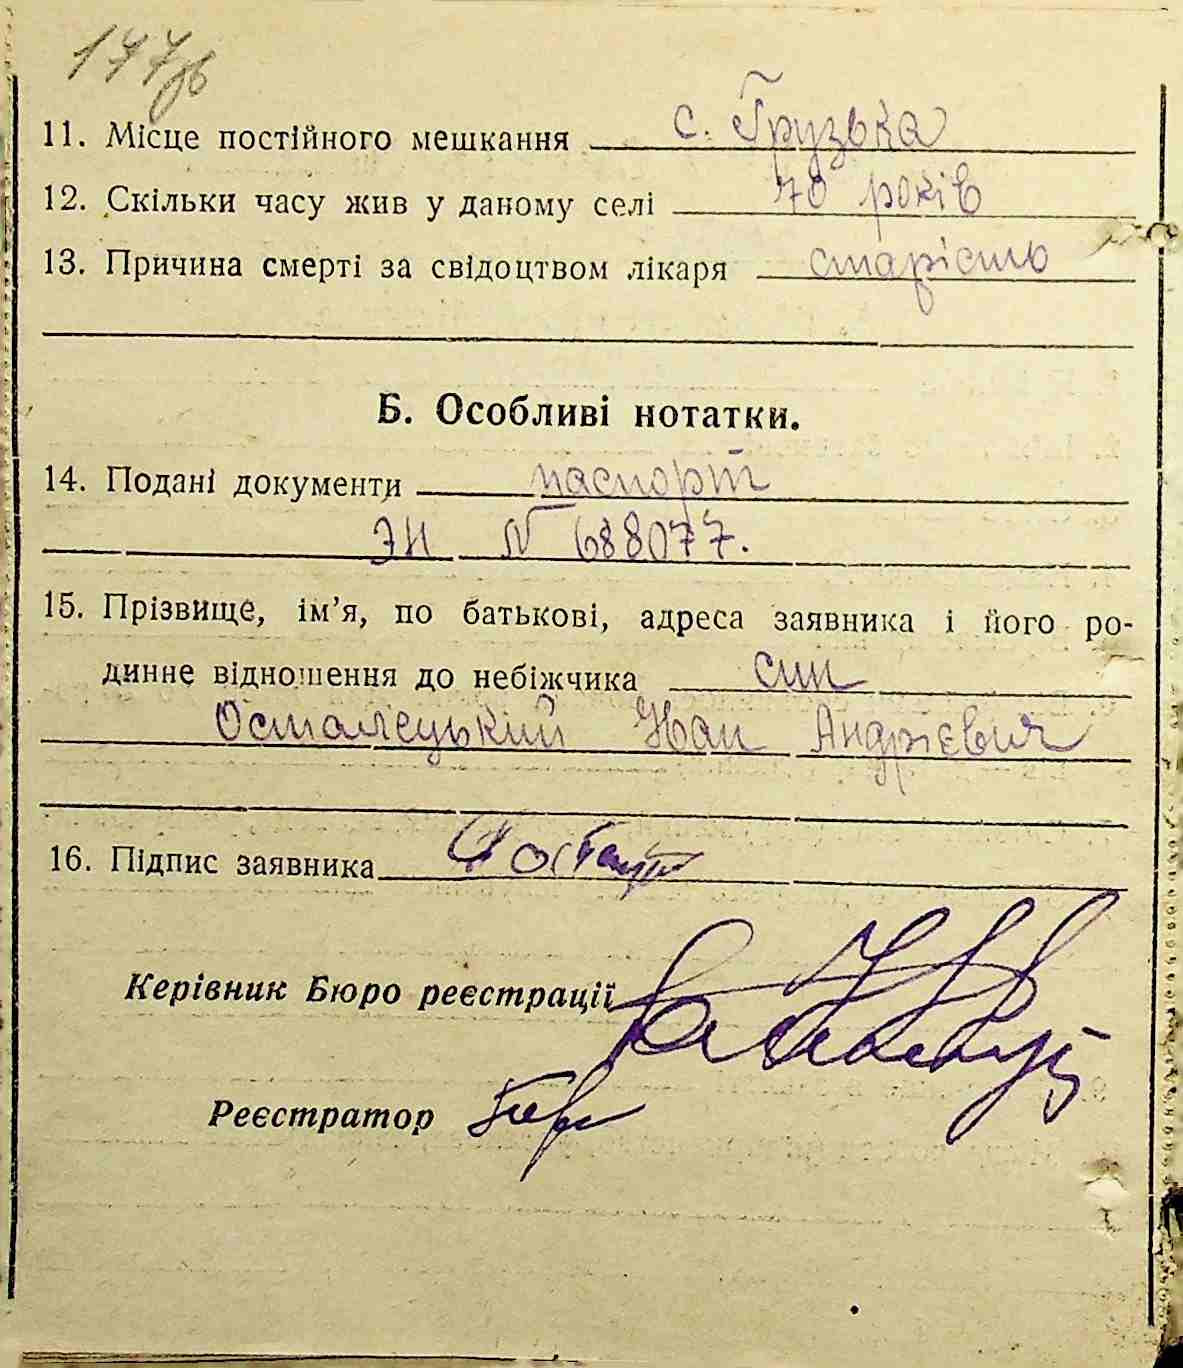 177зв
11. Місце постійного мешкання с. Грузька
12. Скільки часу жив у даному селі 70 років
13. Причина смерті за свідоцтвом лікаря старість
Б. Особливі нотатки.
14. Подані документи паспорт
ЭН № 688077.
15. Прізвище, ім’я, по батькові, адреса заявника і його ро-
динне відношення до небіжчика син
Осталецький Іван Андрієвич
16. Підпис заявника
Керівник Бюро реєстрації
Реєстратор